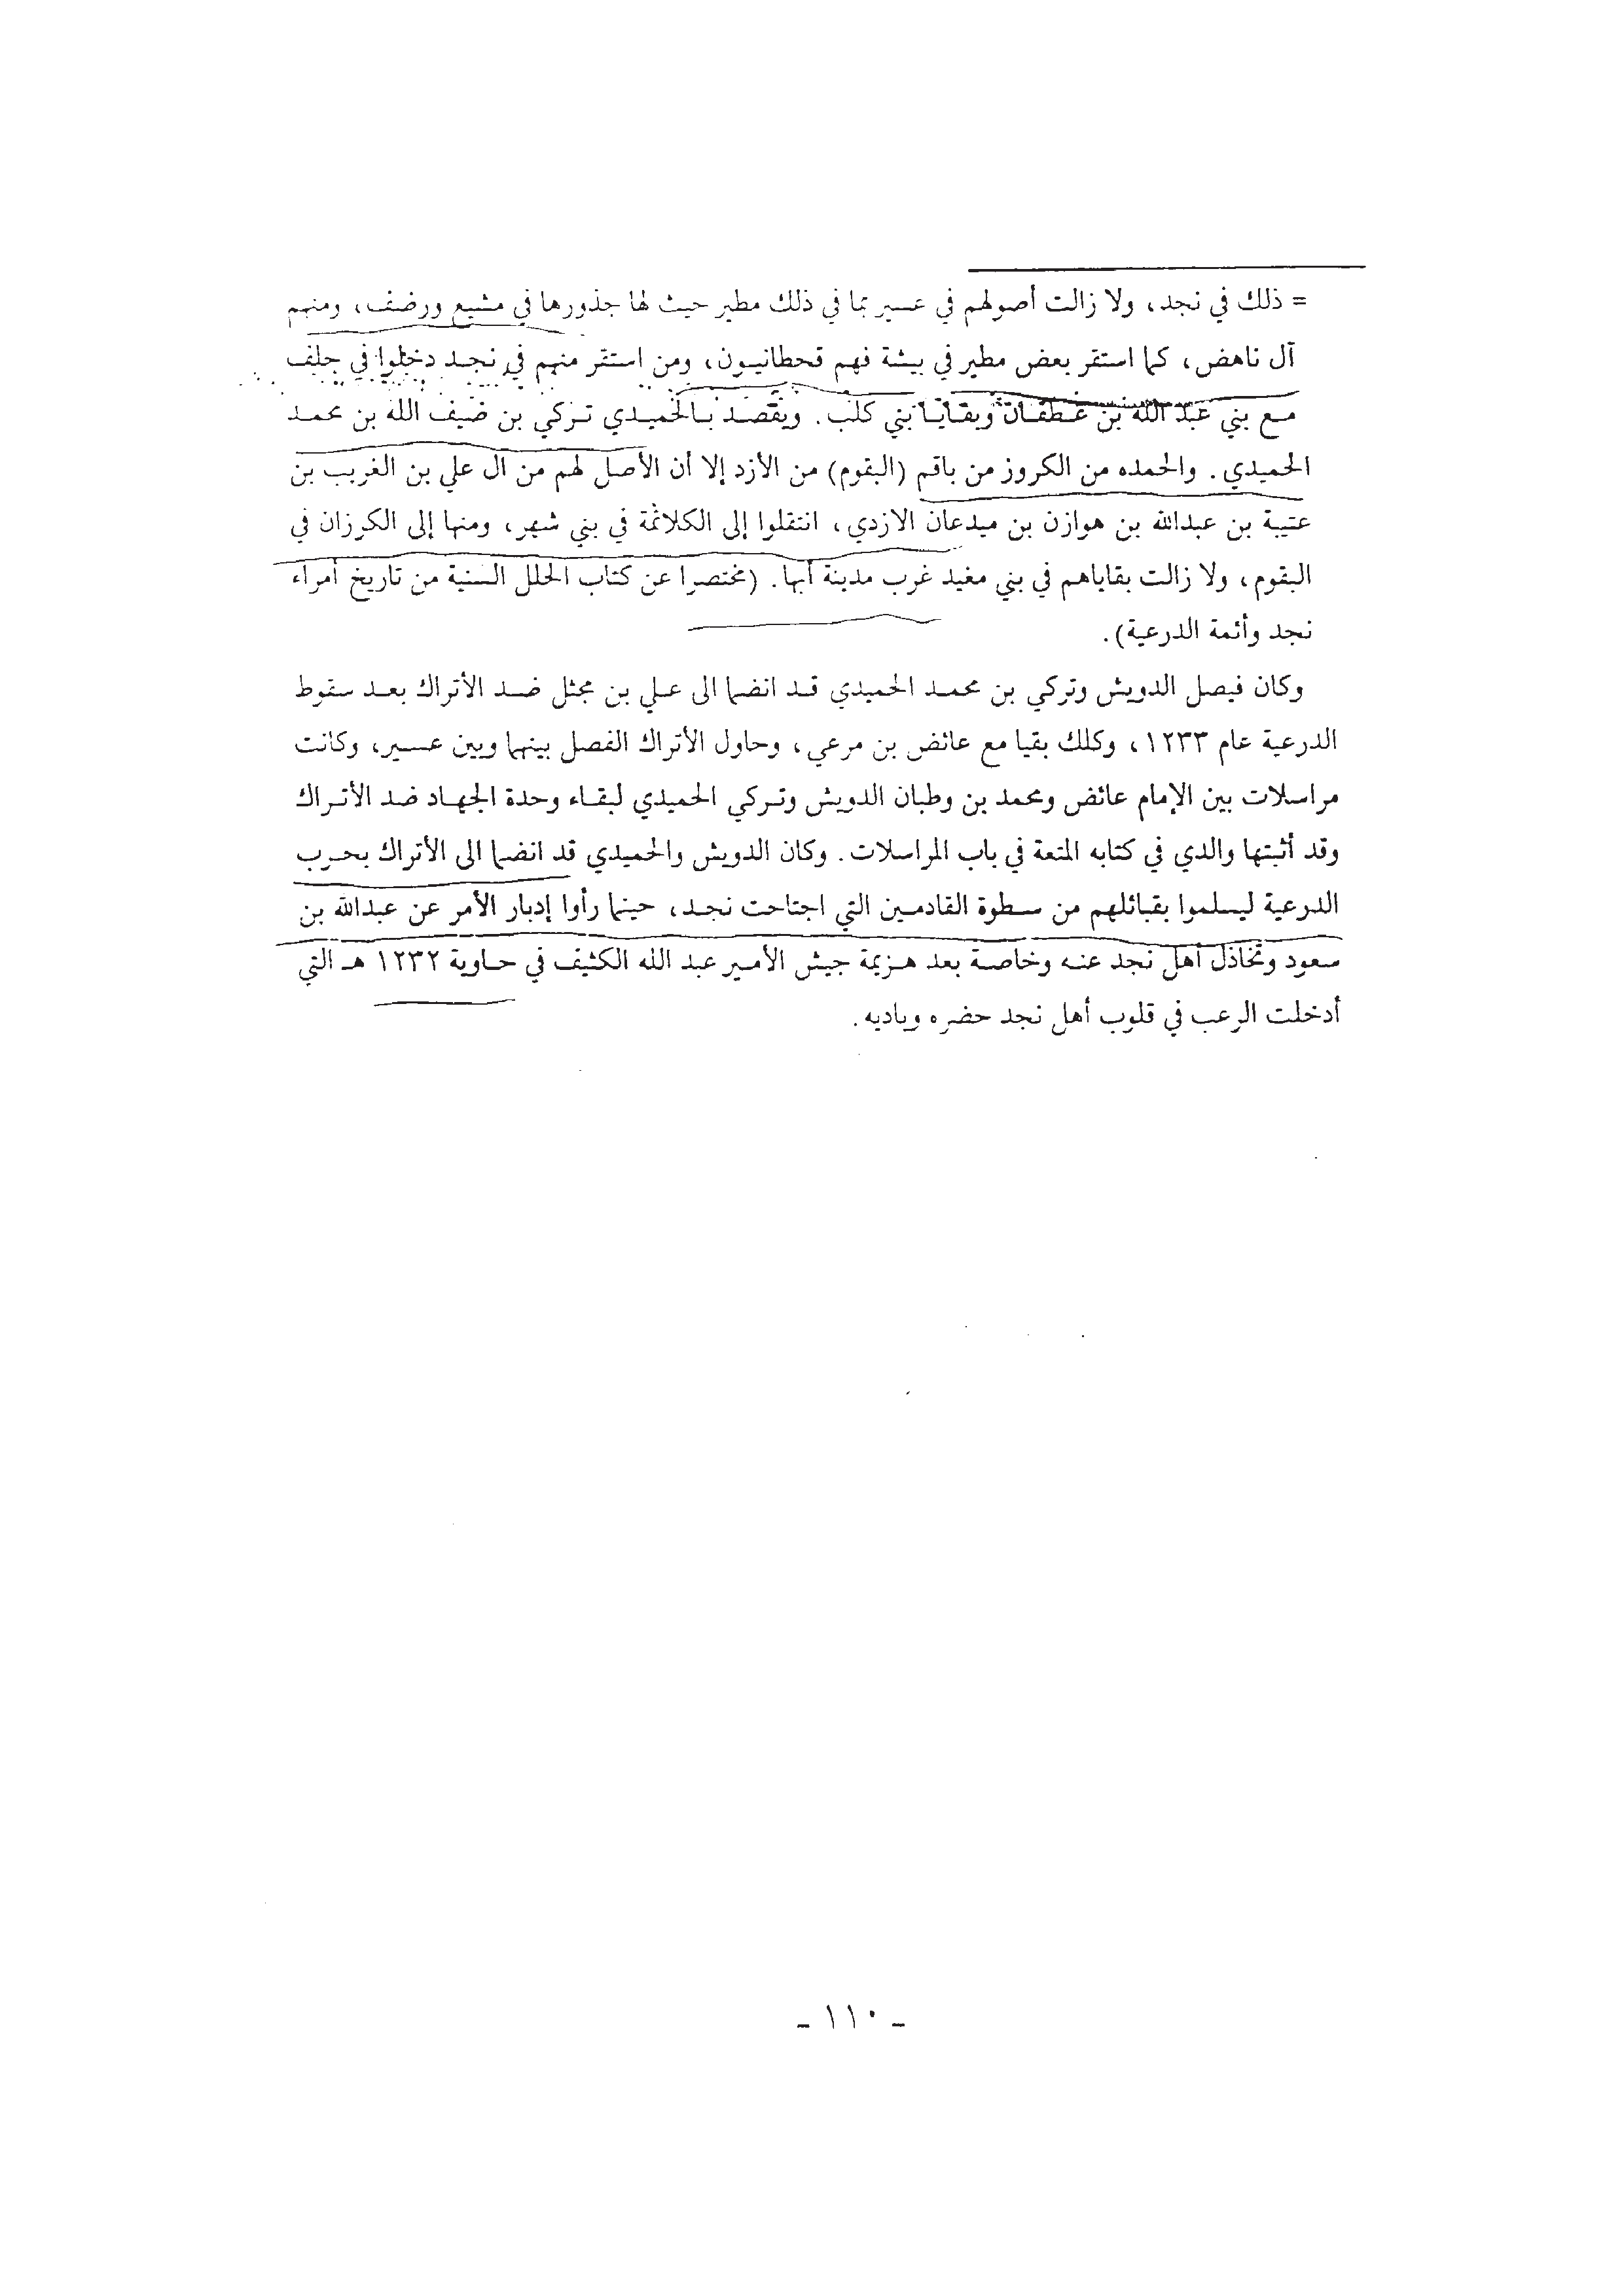 = ذلك في نجد، ولا زالت أصولهم في عسير بما في ذلك مطير حيث لها جذورها في مشيع ورضف، ومنهم
آل ناهض، كما استقر بعض مطير في بيشة فهم قحطانيون، ومن استقر منهم في نجد دخلوا في حلف
مع بني عبد الله بن غطفان وبقايا بني كلب. ويقصد بالحميدي تركي بن ضيف الله بن محمد
الحميدي. والحمده من الكروز من باقم (البقوم) من الأزد إلا أن الأصل لهم من ال علي بن الغريب بن
عتيبة بن عبدالله بن هوازن بن ميدعان الازدي، انتقلوا إلى الكلاثمة في بني شهر، ومنها إلى الكرزان في
البقوم، ولا زالت بقاياهم في بني مغيد غرب مدينة أبها. (مختصرا عن كتاب الحلل السنية من تاريخ أمراء
نجد وأئمة الدرعية).
وكان فيصل الدويش وتركي بن محمد الحميدي قد انضما الى علي بن مجثل ضد الأتراك بعد سقوط
الدرعية عام ١٢٣٣، وكلك بقيا مع عائض بن مرعي، وحاول الأتراك الفصل بينهما وبين عسير، وكانت
مراسلات بين الإمام عائض ومحمد بن وطبان الدويش وتركي الحميدي لبقاء وحدة الجهاد ضد الأتراك
وقد أثبتها والدي في كتابه المتعة في باب المراسلات. وكان الدويش والحميدي قد انضما الى الأتراك بحرب
الدرعية ليسلموا بقبائلهم من سطوة القادمين التي اجتاحت نجد، حينما رأوا إدبار الأمر عن عبدالله بن
سعود وتخاذل أهل نجد عنه وخاصة بعد هزيمة جيش الأمير عبد الله الكثيف في حاوية ١٢٣٢ هـ التي
أدخلت الرعب في قلوب أهل نجد حضره وباديه.
- ١١٠ -